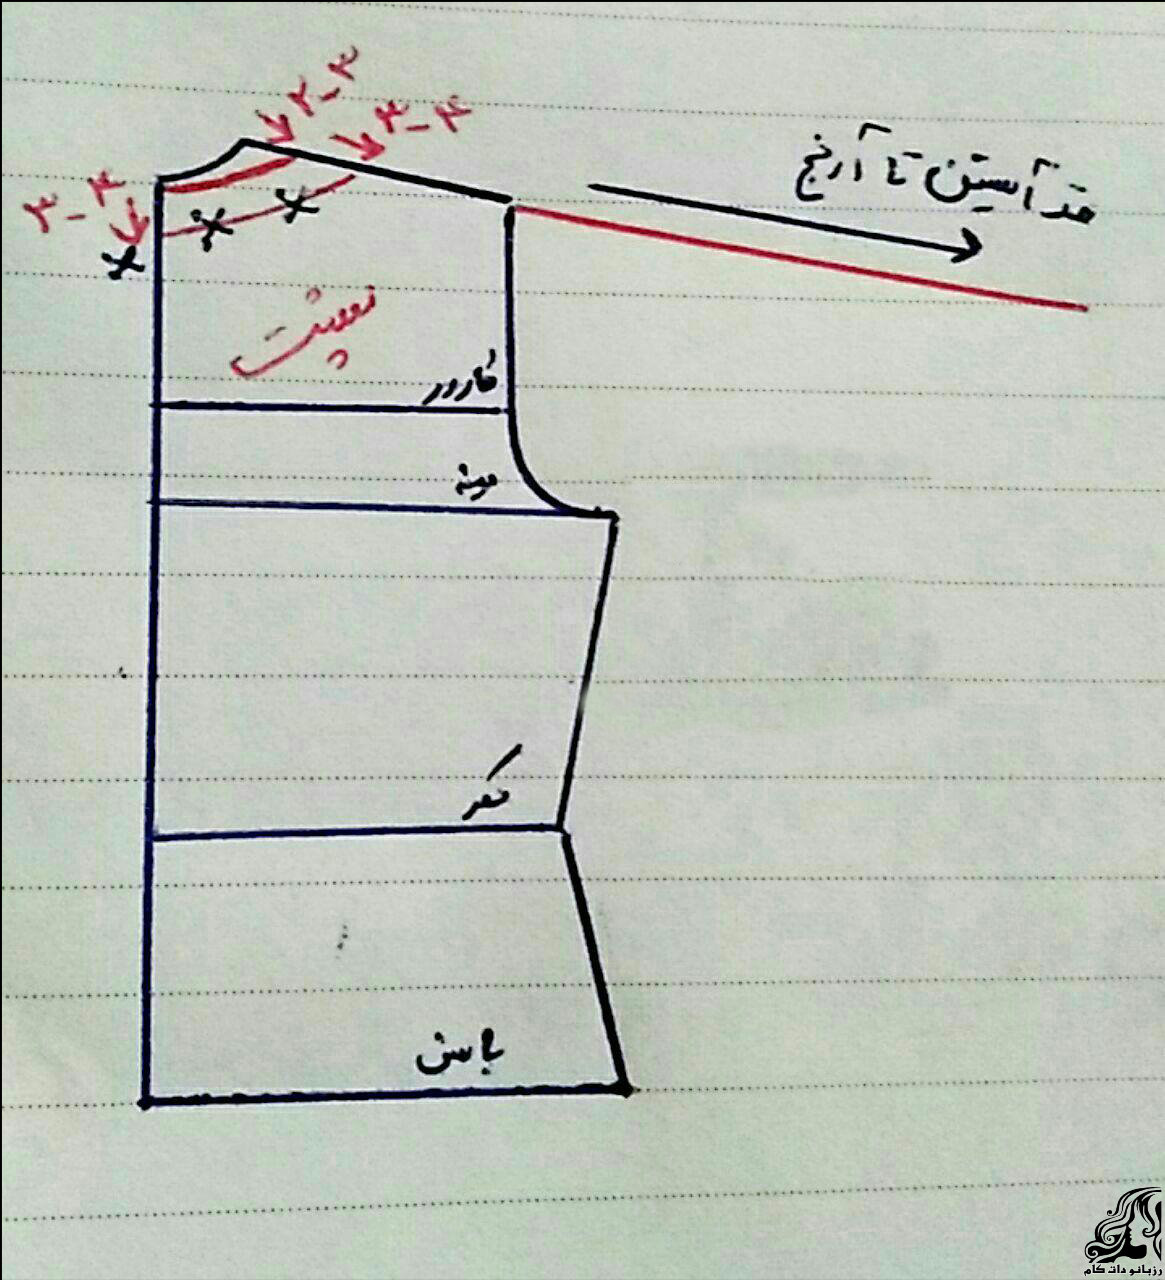 ۲-۳
۳-۴
۳-۴
قد آستین تا آرنج
پشت
کارور
سینه
کمر
باسن
رزبانو دات کام